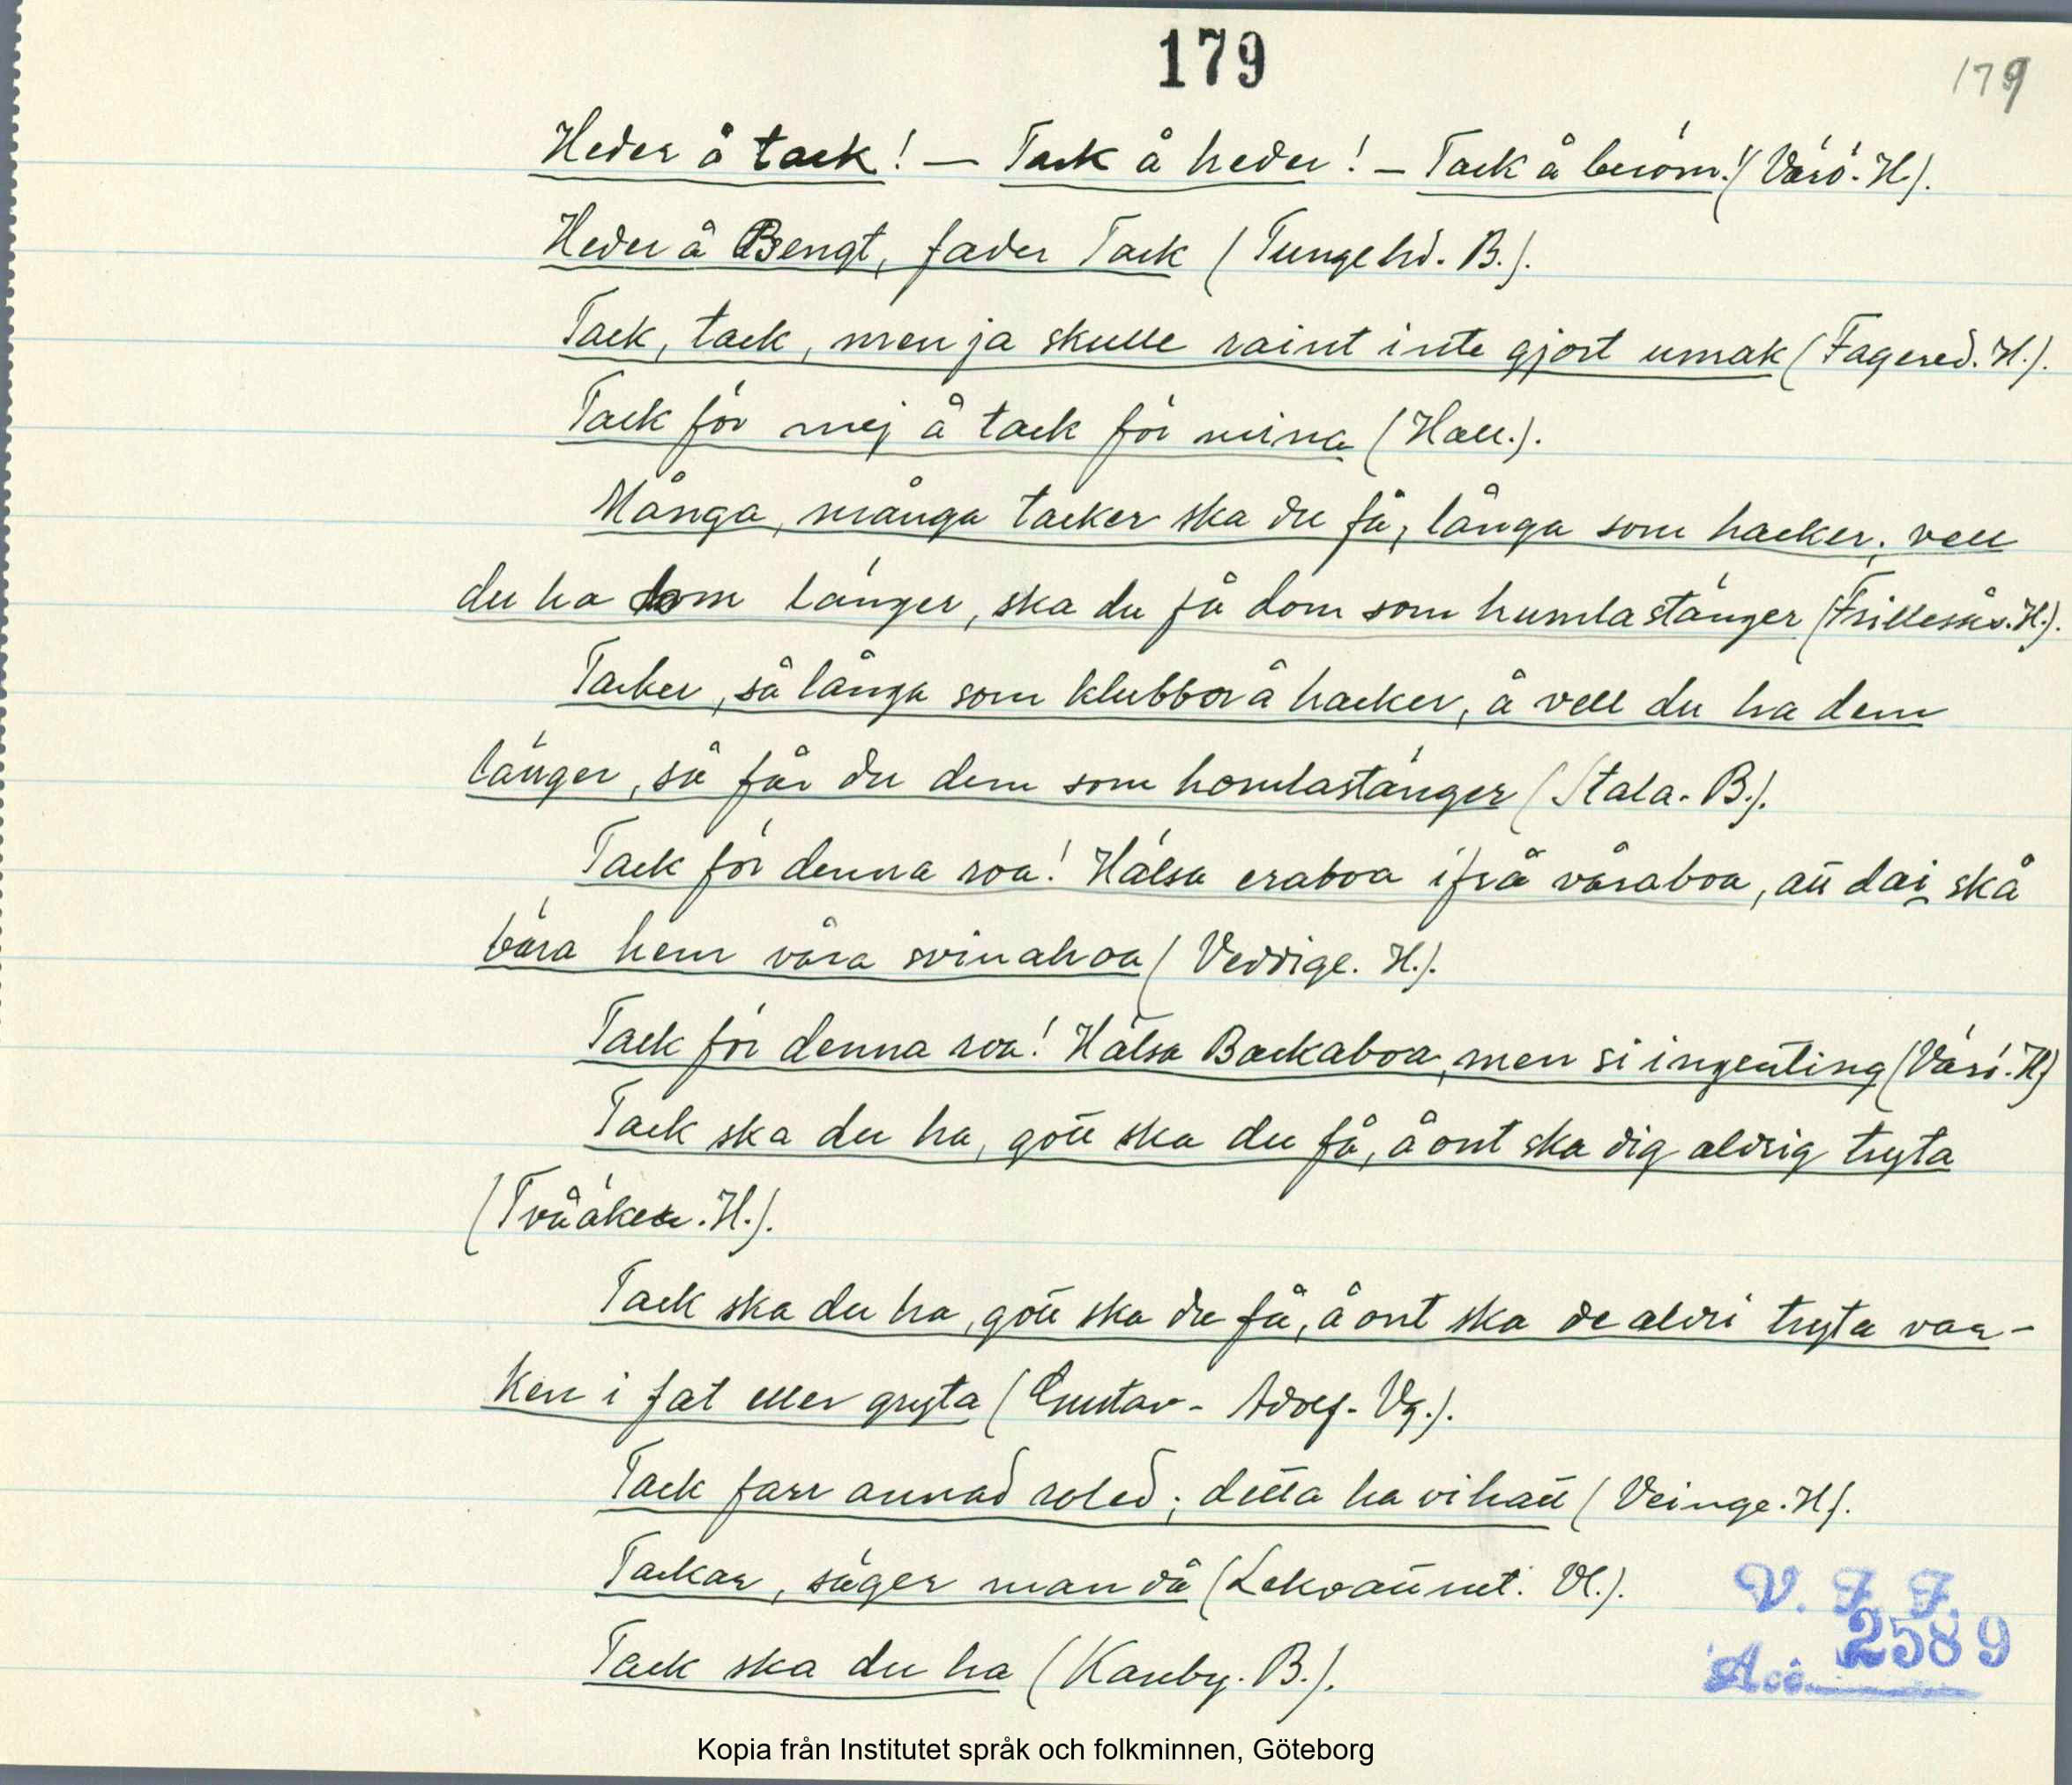 179
179
Heder å tack! — Tack å heder! — Tack å beröm! (Värö. H.).
Heder å Bengt, fader Tack (Tunge hd. B.).
Tack, tack, men ja skulle raint inte gjort umak (Fagered. H.).
Tack för mej å tack för mina (Hall.).
Många, många tacker ska du få, långa som hacker; vell
du ha dom länger, ska du få dom som humlastänger (Frillesås. H.).
Tacker, så långa som klubbor å hacker, å vell du ha dem
länger, så får du dem som homlastänger (Stala. B.).
Tack för denna roa! Hälsa eraboa ifrå våraboa, att dai skå
bära hem våra svinahoa (Veddige. H.).
Tack för denna roa! Hälsa Backaboa, men si ingenting (Värö. H)
Tack ska du ha, gott ska du få, å ont ska dig aldrig tryta
(Tvååker. H.).
Tack ska du ha, gott ska du få, å ont ska de aldri tryta var-
ken i fat eller gryta (Gustav- Adolf. Vg.).
Tack farr annad roled; detta ha vi hatt (Veinge. H).
Tackar, säger man då (Lekvattnet. Vl.).
Tack ska du ha (Kareby. B.).
V. F. F.
2589
Acc.
Kopia från Institutet språk och folkminnen, Göteborg